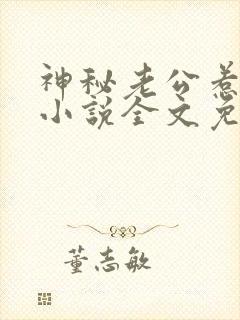 神秘老公惹
小说全文免
董志敏